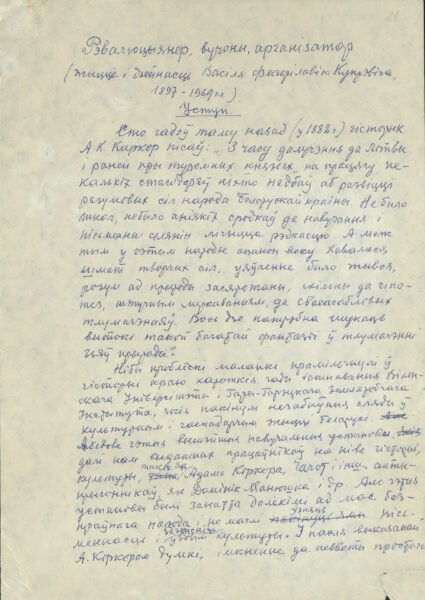 Рэвалюцыянер, вучоны, арганізатар
(жыццё і дзейнасць Васіля Феафілавіча Купрэвіча,
1897-1969 гг)
Уступ.
Сто гадоў таму назад (у 1882 г) гісторык
А.К. Кіркор пісаў: „З часу далучэння да Літвы
і раней пры туземных князьях, на працягу не-
калькіх стагоддзяў ніхто недбаў аб развіцці
разумовых сіл народа беларускай краіны. Не было
школ, небыло аніякіх сродкаў да навучання і
пісьменны селянін лічыцца рэдкасцю. А меж
тым у гэтым народзе спакон веку хавалася
шмат творчых сіл, уяўленне было жывое,
розум ад прыроды засяроджаны, схільны да гіпо-
тез, штучным меркаванням, да сваеасаблівых
тлумачэнняў. Вось дзе патрэбна шукаць
вытокі такой багатай фантазіі ў тлумачэнні
з'яў прыроды".
Нібы праблескі маланкі прамільгнулі ў
гісторыі краю кароткія гады існавання Вілен-
скага Універсітэта і Горы-Горэцкага Земляробчага
Інстытута, якія пакінулі незабыўныя сляды ў
культурным і гаспадарчым жыцці Беларусі.
Абедве гэтыя вышэйшыя навучальныя установы
далі нам выдатных працаўнікоў на ніве гісторыі,
культуры, такіх як Адама Кіркора, Чачот і інш.
як Дамінік Манюшка і др. Але гэтыя
установы былі занадта далёкімі ад мас без-
праўнага народа і не маглі узняць пісь-
меннасці і культуры. І пасля выказанай
А. Кіркорам думкі, імкненне да асветы простага